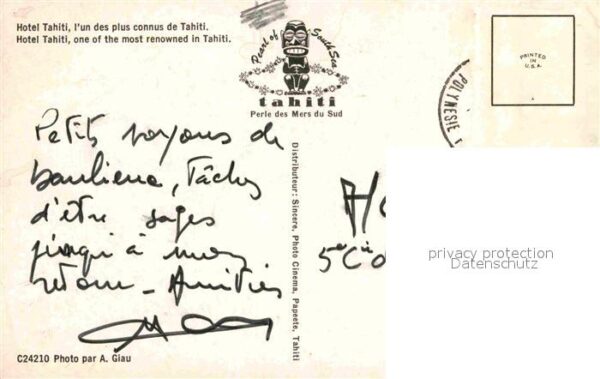 Hotel Tahiti, l'un des plus connus de Tahiti.
Hotel Tahiti, one of the most renowned in Tahiti.
Pearl of South Sea
tahiti
Perle des Mers du Sud
PRINTED
IN
U.S.A.
POLYNESIE
Petits voyous de
banlieue, Tâchez
d'être sages
jusqu'à mon
retour - Amitiés
Distributeur: Sincere, Photo Cinema, Papeete, Tahiti
5e Cie
privacy protection
Datenschutz
C24210 Photo par A. Giau